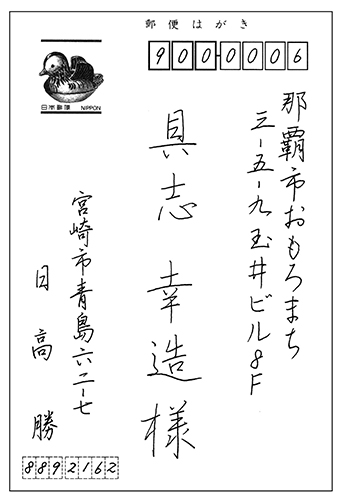 郵便はがき
900-0006
日本郵便 NIPPON
那覇市おもろまち
三-五-九玉井ビル8F
具志 幸造 様
宮崎市青島六-二-七
日高 勝
8892162